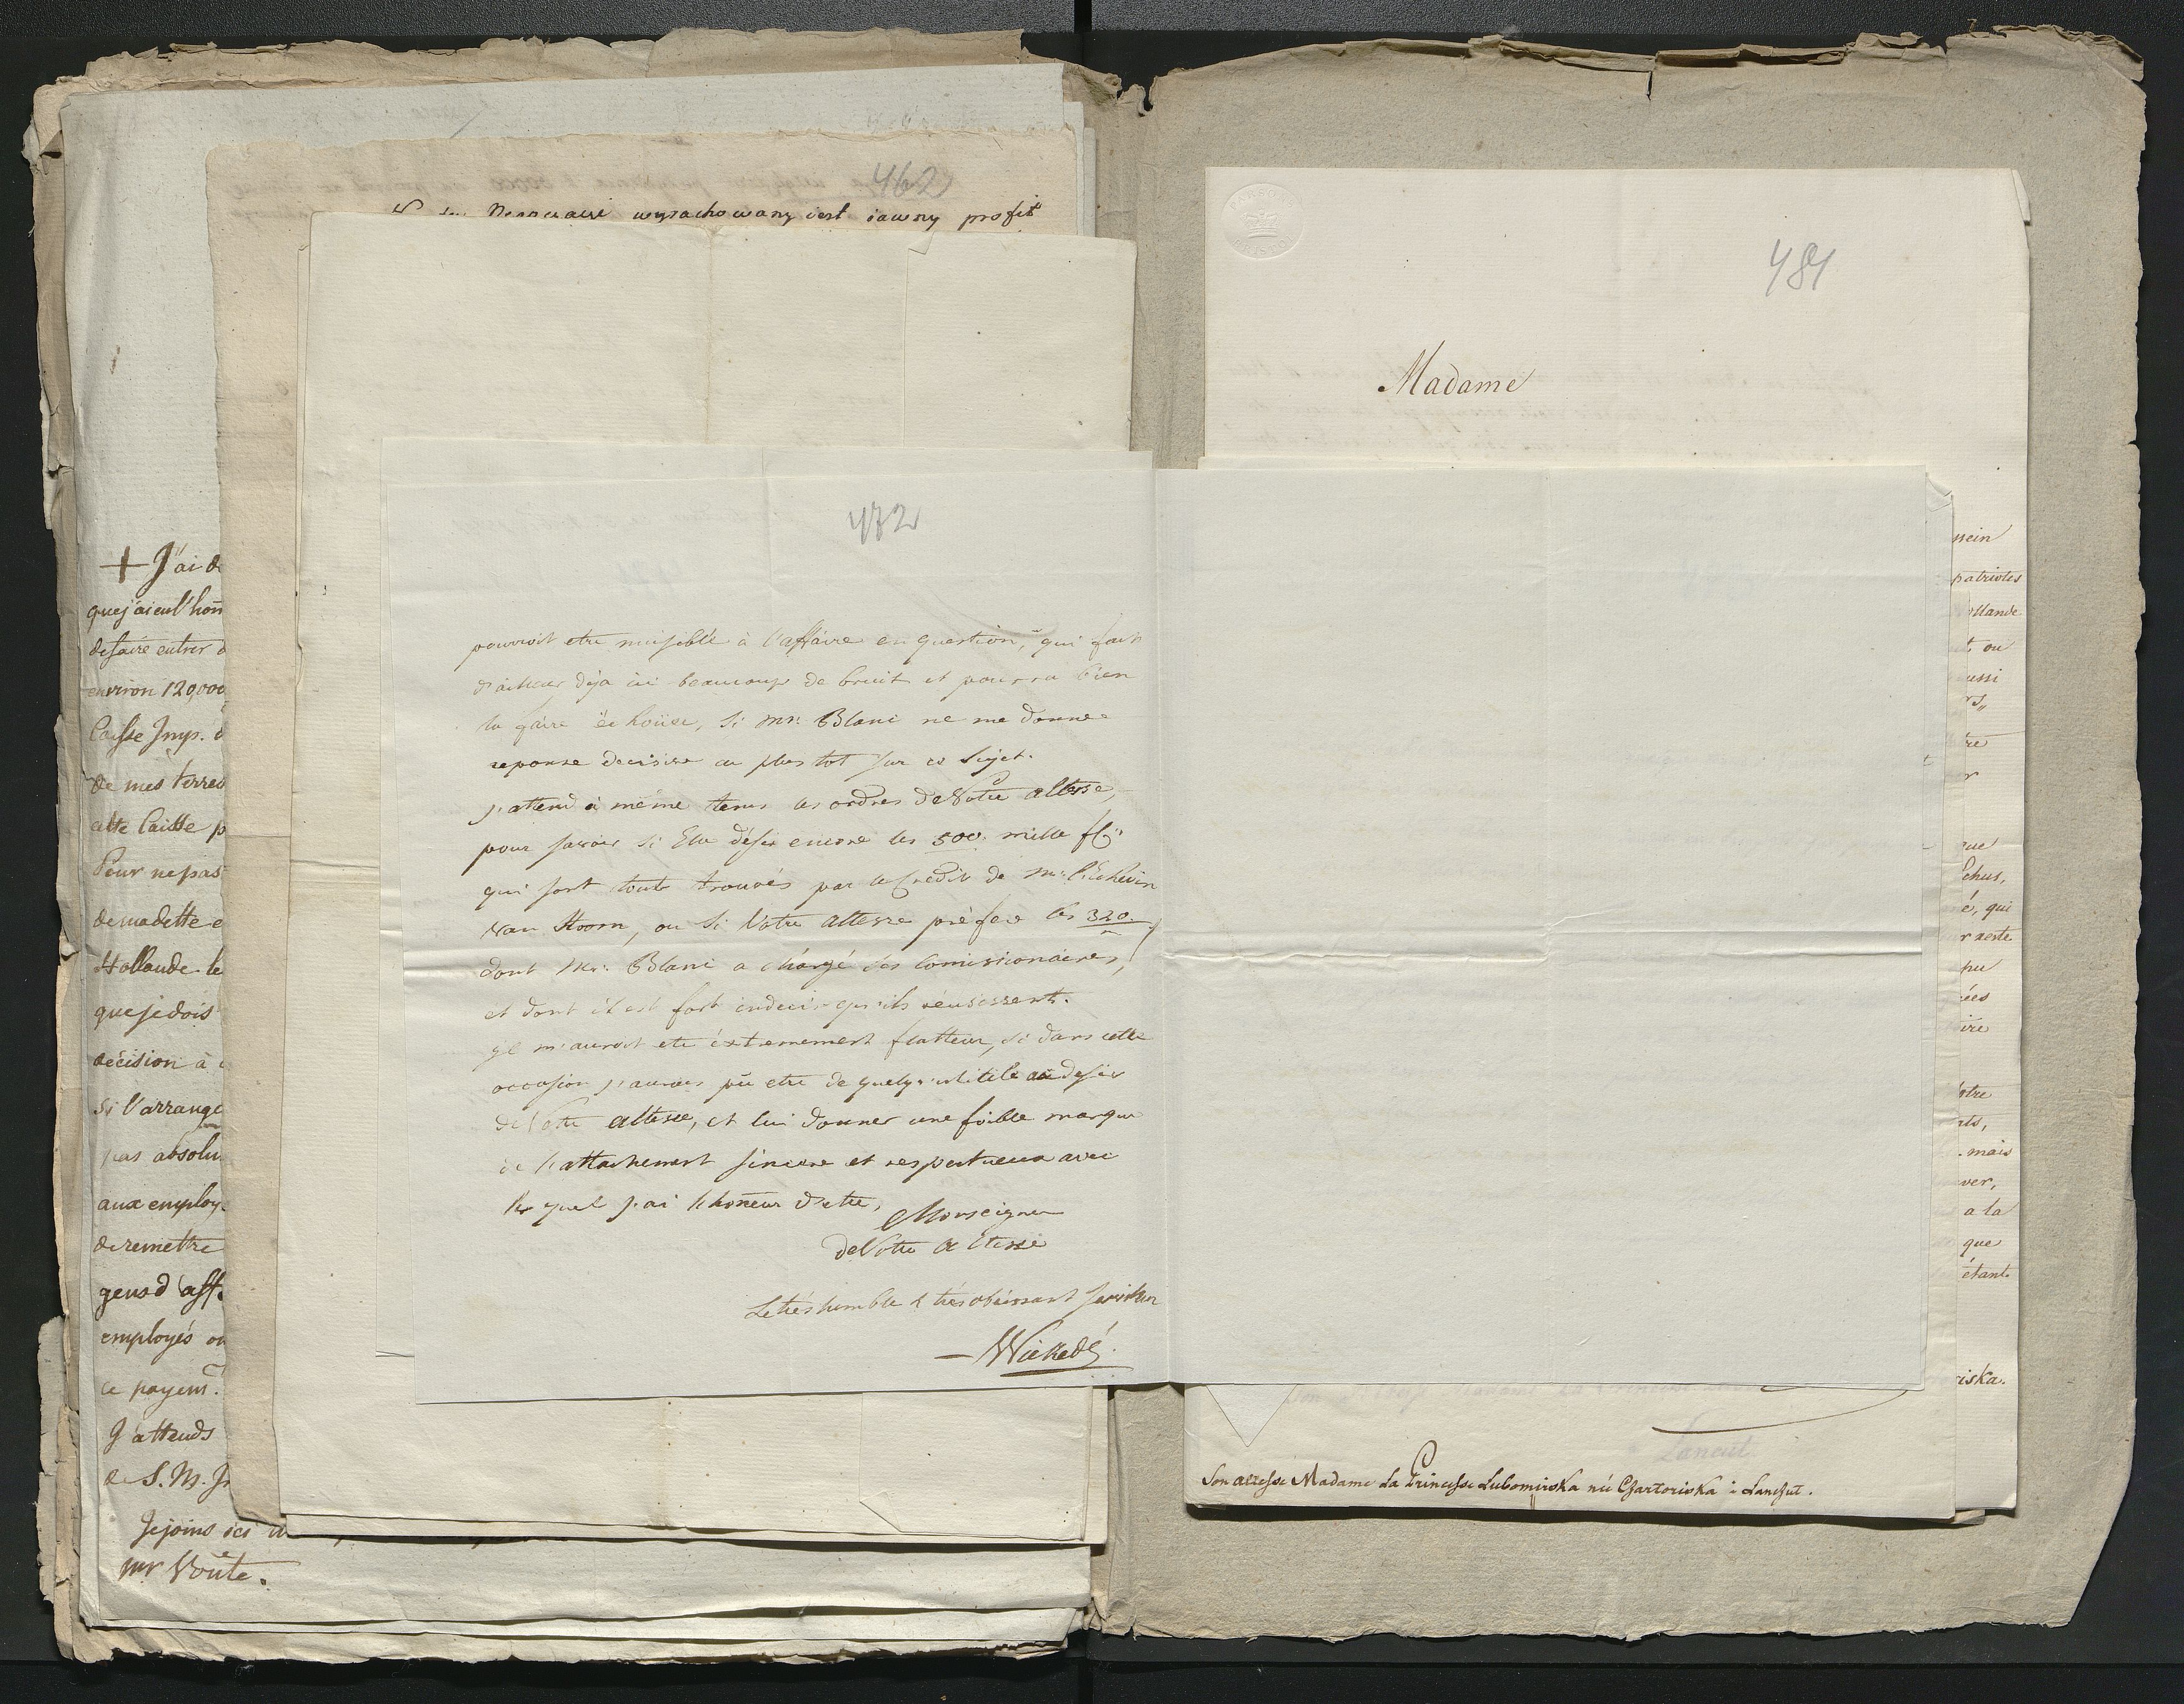 462
wyrachowany iest iawny profit
+ J'ai d
que j'ai eu l'hon
de faire entrer d
environ 120,000
Caisse Imp. d
de mes terres
cette Caisse p
Pour ne pas
de ma dette e
Hollande le
que je dois
décision à
si l'arrange
pas absolu
aux employ
de remettre
gens d'aff.
employés ou
ce payem.t
J'attends
de S. M. I
Je joins ici
mr Voûte.
472
pourroit etre nuisible à l'affaire en question, qui fait
d'ailleur déja ici beaucoup de bruit et pourra bien
la faire échoüer, si Mr: Blanc ne me donne
reponse decisive au plus tot sur ce sujet.
j'attend à même tems les ordres de Votre altesse,
pour savoir si Elle désir encore les 500. mille fl:
qui sont touts trouvés par le Credit de Mr: l'Echevin
van Hoorn, ou si Votre altesse préfere les 320.
dont Mr: Blanc a chargé des Comissionaires,
et dont il est fort indecis qu'ils réusissent.
il m'auroit eté éxtremement flatteur, si dans cette
occasion j'aurois pû etre de quelqu'utilité au desir
de Votre altesse, et lui donner une foible marque
de l'attachement sincere et respectueux avec
le quel j'ai l'honneur d'etre,
Monseigneur
de Votre Altesse
Le très humble & très obéissant serviteur
Wickedé.
484
Madame
ssein
patriotes
ollande
ou
ussi
rs,,
tre
r
que
Echus,
é, qui
r reste
pu
ées
ire
otre
ts,
mais
ver,
a la
que
étant
iska.
Lancut
Son altesse Madame La Princesse Lubomirska né Csartoriska à Lanszut.